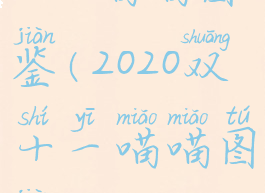 jiàn shuāng
鉴(2020双
shí yī miāo miāo tú
十一喵喵图